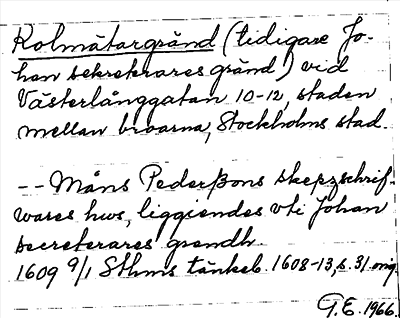 Kolmätargränd (tidigare Jo-
han sekreterares gränd) vid
Västerlånggatan 10-12, staden
mellan broarna, Stockholms stad.
-- Måns Pederßons skepzschrif-
wares hws, liggiendes vti Johan
secreterares grendh.
1609 9/1 Sthms tänkeb. 1608-13, s. 31. omg.
G.E. 1966.